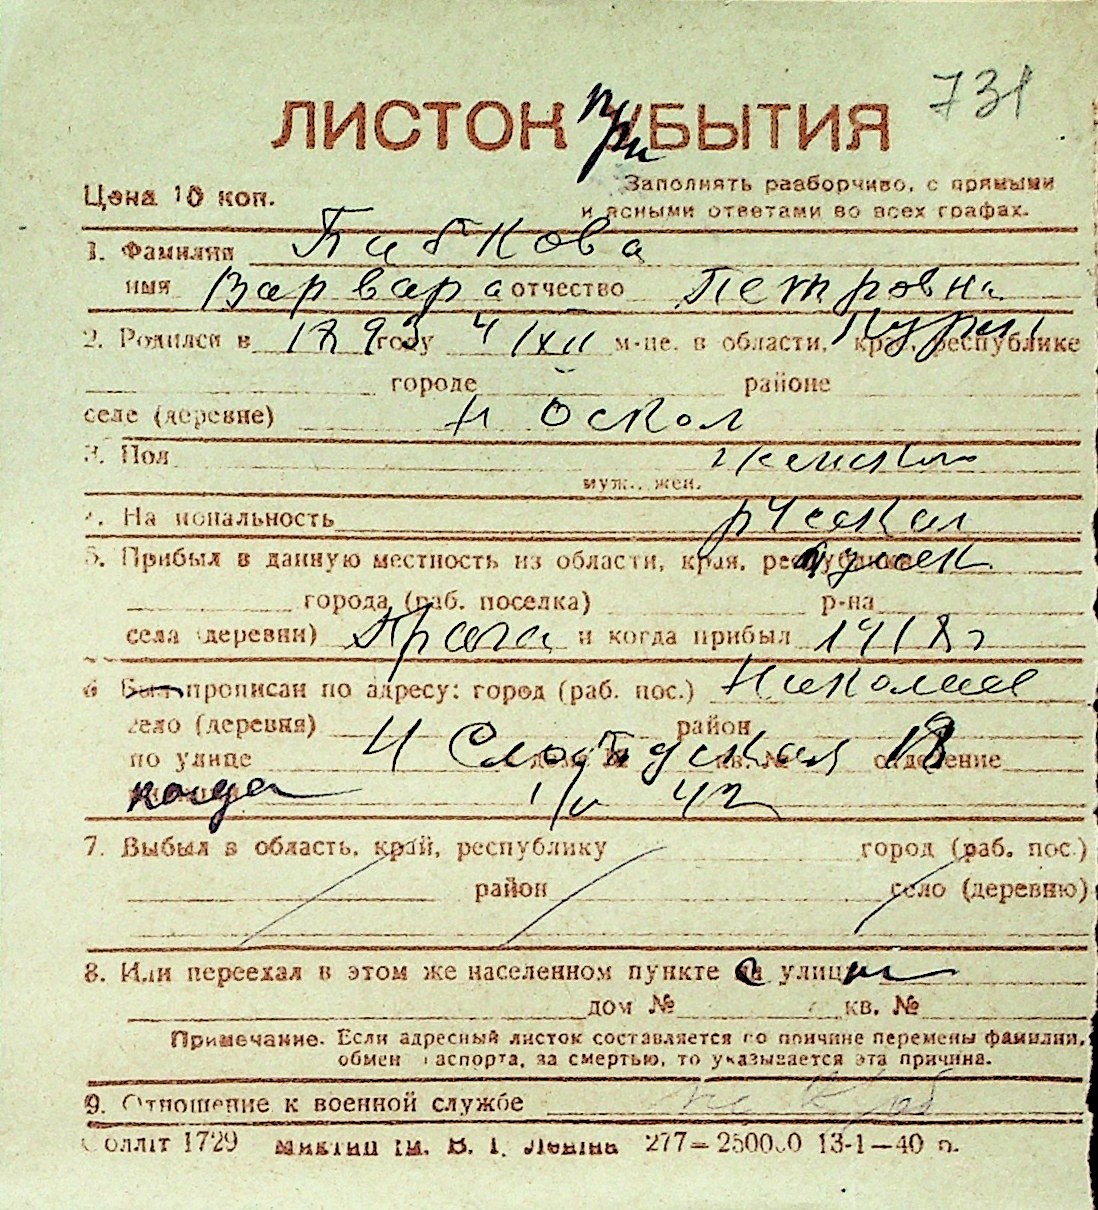 731
ЛИСТОК При УБЫТИЯ
Цена 10 коп.
Заполнять разборчиво, с прямыми
и ясными ответами во всех графах.
1. Фамилия
имя Варвара отчество Петровна
2. Родился в 1893 году 4/XII м-це. в области, края, республике
городе районе
селе (деревне) Н Оскол
3. Пол женский
муж., жен.
4. Национальность русская
5. Прибыл в данную местность из области, края, республики
города (раб. поселка) р-на
села (деревни) и когда прибыл 1918 г
6 Был прописан по адресу: город (раб. пос.) Николаев
село (деревня) район
по улице 4 Слободская 18 отделение
когда 42
7. Выбыл в область, край, республику город (раб. пос.)
район село (деревню)
8. Или переехал в этом же населенном пункте с улицы
дом № кв. №
Примечание. Если адресный листок составляется по причине перемены фамилии,
обмен паспорта, за смертью, то указывается эта причина.
9. Отношение к военной службе
Обллiт 1729 iм. В. І. Ленiна 277—250000 13-1—40 р.